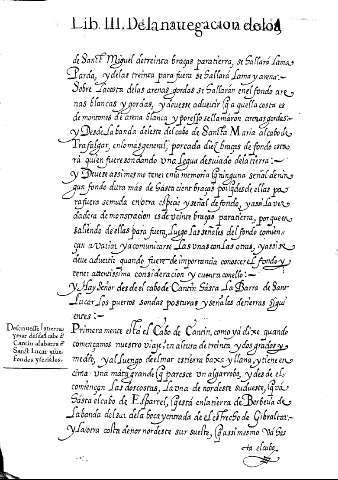 Lib. III. De la navegacion de los
de Sanct Miguel de treinta braças para tierra, se hallará Lama
Parda, y de las treinta para fuera se hallará Lama y arena.
Sobre La costa de las arenas gordas se hallarán en el fondo are
nas blancas y gordas, y devese advertir que aquella costa es
de montones de arena blanca y por esso se llamáron arenas gordas:~
y Desde La banda deleste del cabo de Sancta Maria al cabo de
Trafalgar, en lo mas general, por cada diez braças de fondo estara
rá quien fuere sondando una Legua desviado de la tierra:~
y Devese assimesmo tener en la memoria que ninguna señal de nin
gun fondo dura mas de hasta cient braças porque desde ellas pa
ra fuera se muda en otra especie y señal de fondo, y assi la ver
dadera demonstracion es de veinte braças para tierra, porque en
saliendo de ellas para fuera, Luego las señales del fondo comien
çan a variar y a comunicarse Las unas con las otras, y assi se
deve advertir quando fuere de importancia conocer el fondo y
tener atentissima consideracion y cuenta con ello:~
y Hay Señor desde el cabo de Cantin hasta La Barra de Sanct
Lucar Los puertos sondas posturas y señales de tierras sigui
entes:~
Primeramente está el Cabo de Cantin, como ya dixe quando
començamos nuestro viaje en altura de treinta y dos grados y
medio, y al Luengo del mar es tierra baxa y llana, y tiene en
cima una mata grande que paresce un algarrobo, y desde el
comiençan Las dos costas, La una de nordeste sudueste, que vá
hasta el cabo de Esparrel, que está en la tierra de Berberia de
La banda del sur de la boca y entrada de el estrecho de Gibraltar
y La otra costa de nornordeste sur sueste, que assimesmo va has
ta el cabo
De cruellas tierras
y mar desde el cabo de
Cantin a la barra de
Sanct Lucar, con
fondos y señales.